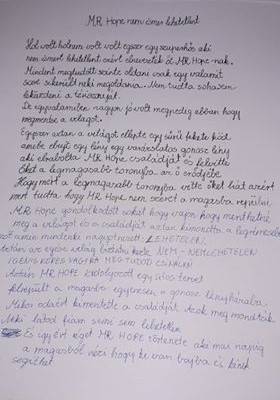 MR Hope nem ismer lehetetlent
Hol volt holnem volt volt egyszer egy szuperhős aki
nem ismert lehetetlent ezért elnevezték őt MR Hope-nak.
Mindent megtudott szinte oldani csak egy valamit
sose sikerült neki megoldania. Nem tudta sohasem
leküzdeni a tériszonyát.
De egyvalamiben nagyon jó volt megpedig abban hogy
megmentse a világot.
Egyszer aztán a világot ellepte egy sűrű fekete köd
amibe elbújt egy lény egy varázslatos gonosz lény
aki elrabolta MR Hope családját és felvitte
őket a legmagasabb toronyba az ő erődjébe
Hogy mért a legmagasabb toronyba vitte őket hát azért
mert tudta, hogy MR Hope nem szeret a magasba repülni
MR Hope gondolkodott sokat hogy vajon hogy menthetné
meg a világot és a családját aztán kimondta a legrémesebb
szót amin mindenki meglepődött: LEHETETLEN.
aztán az egész világ biztatni kezdte NEM-NEMLEHETETLEN
IGENIS KÉPES VAGY RÁ MEG TUDOD CSINÁLNI
Aztán MR HOPE kidolgozott egy titkos tervet
felrepült a magasba egyenesen a gonosz lény házába.
Mikor odaért kimentette a családját azok meg mondták
Neki látod fiam semmi sem lehetetlen
És így ért véget MR HOPE története aki mai napig
a magasból nézi hogy ki van bajba és kinek
segíthet